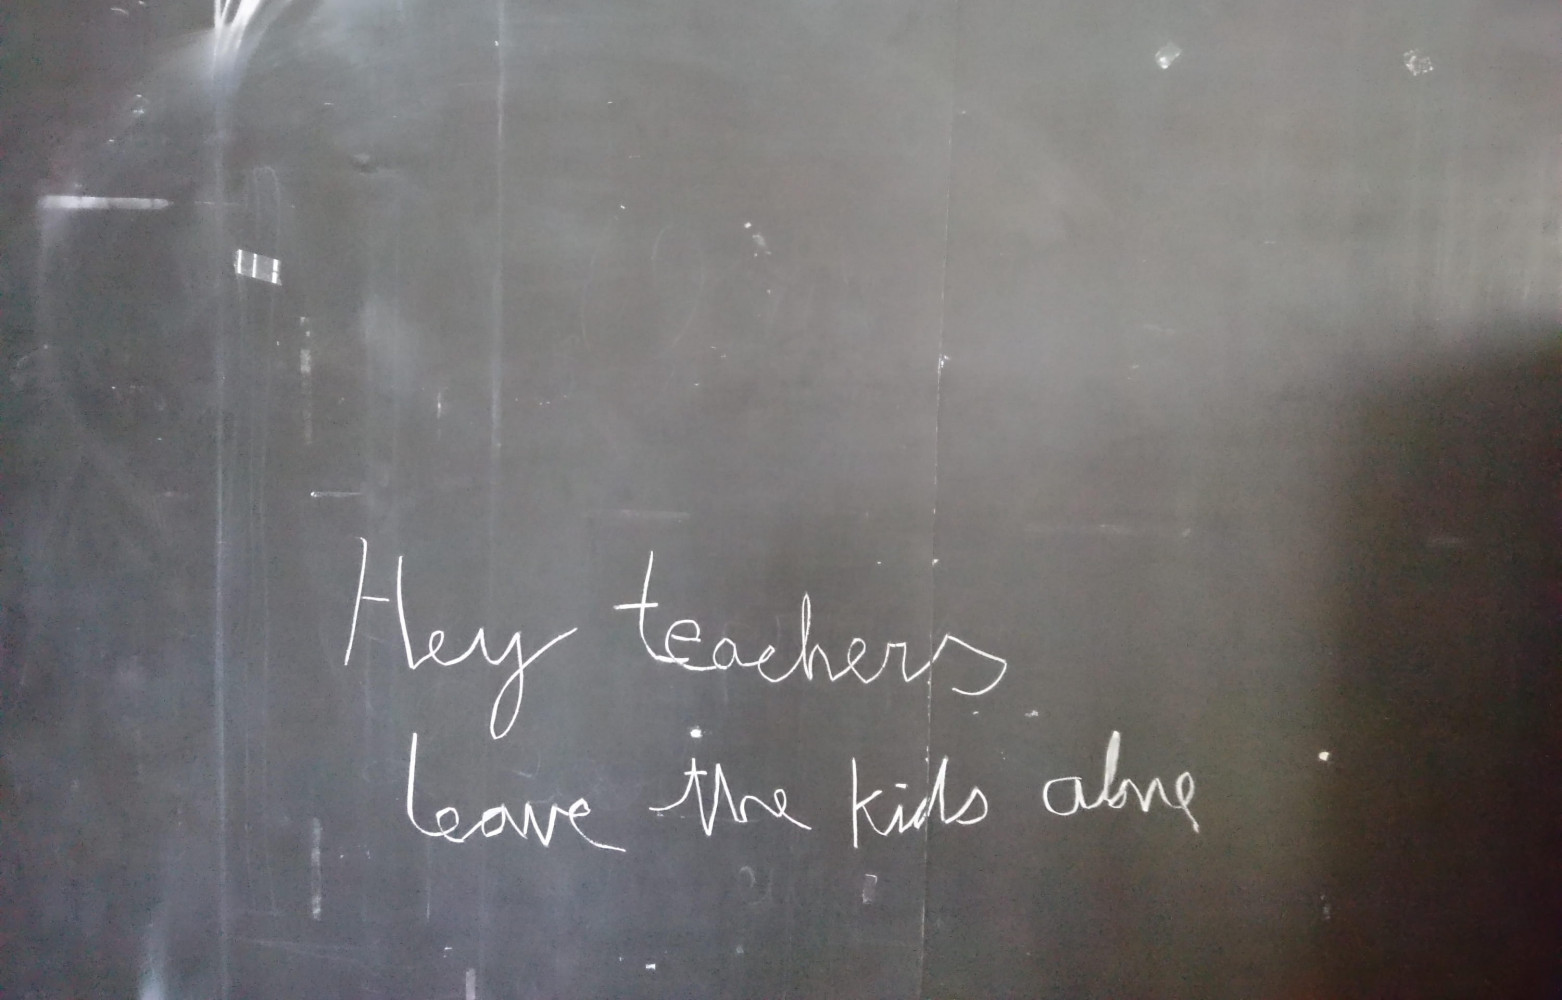 Hey teachers
leave the kids alone